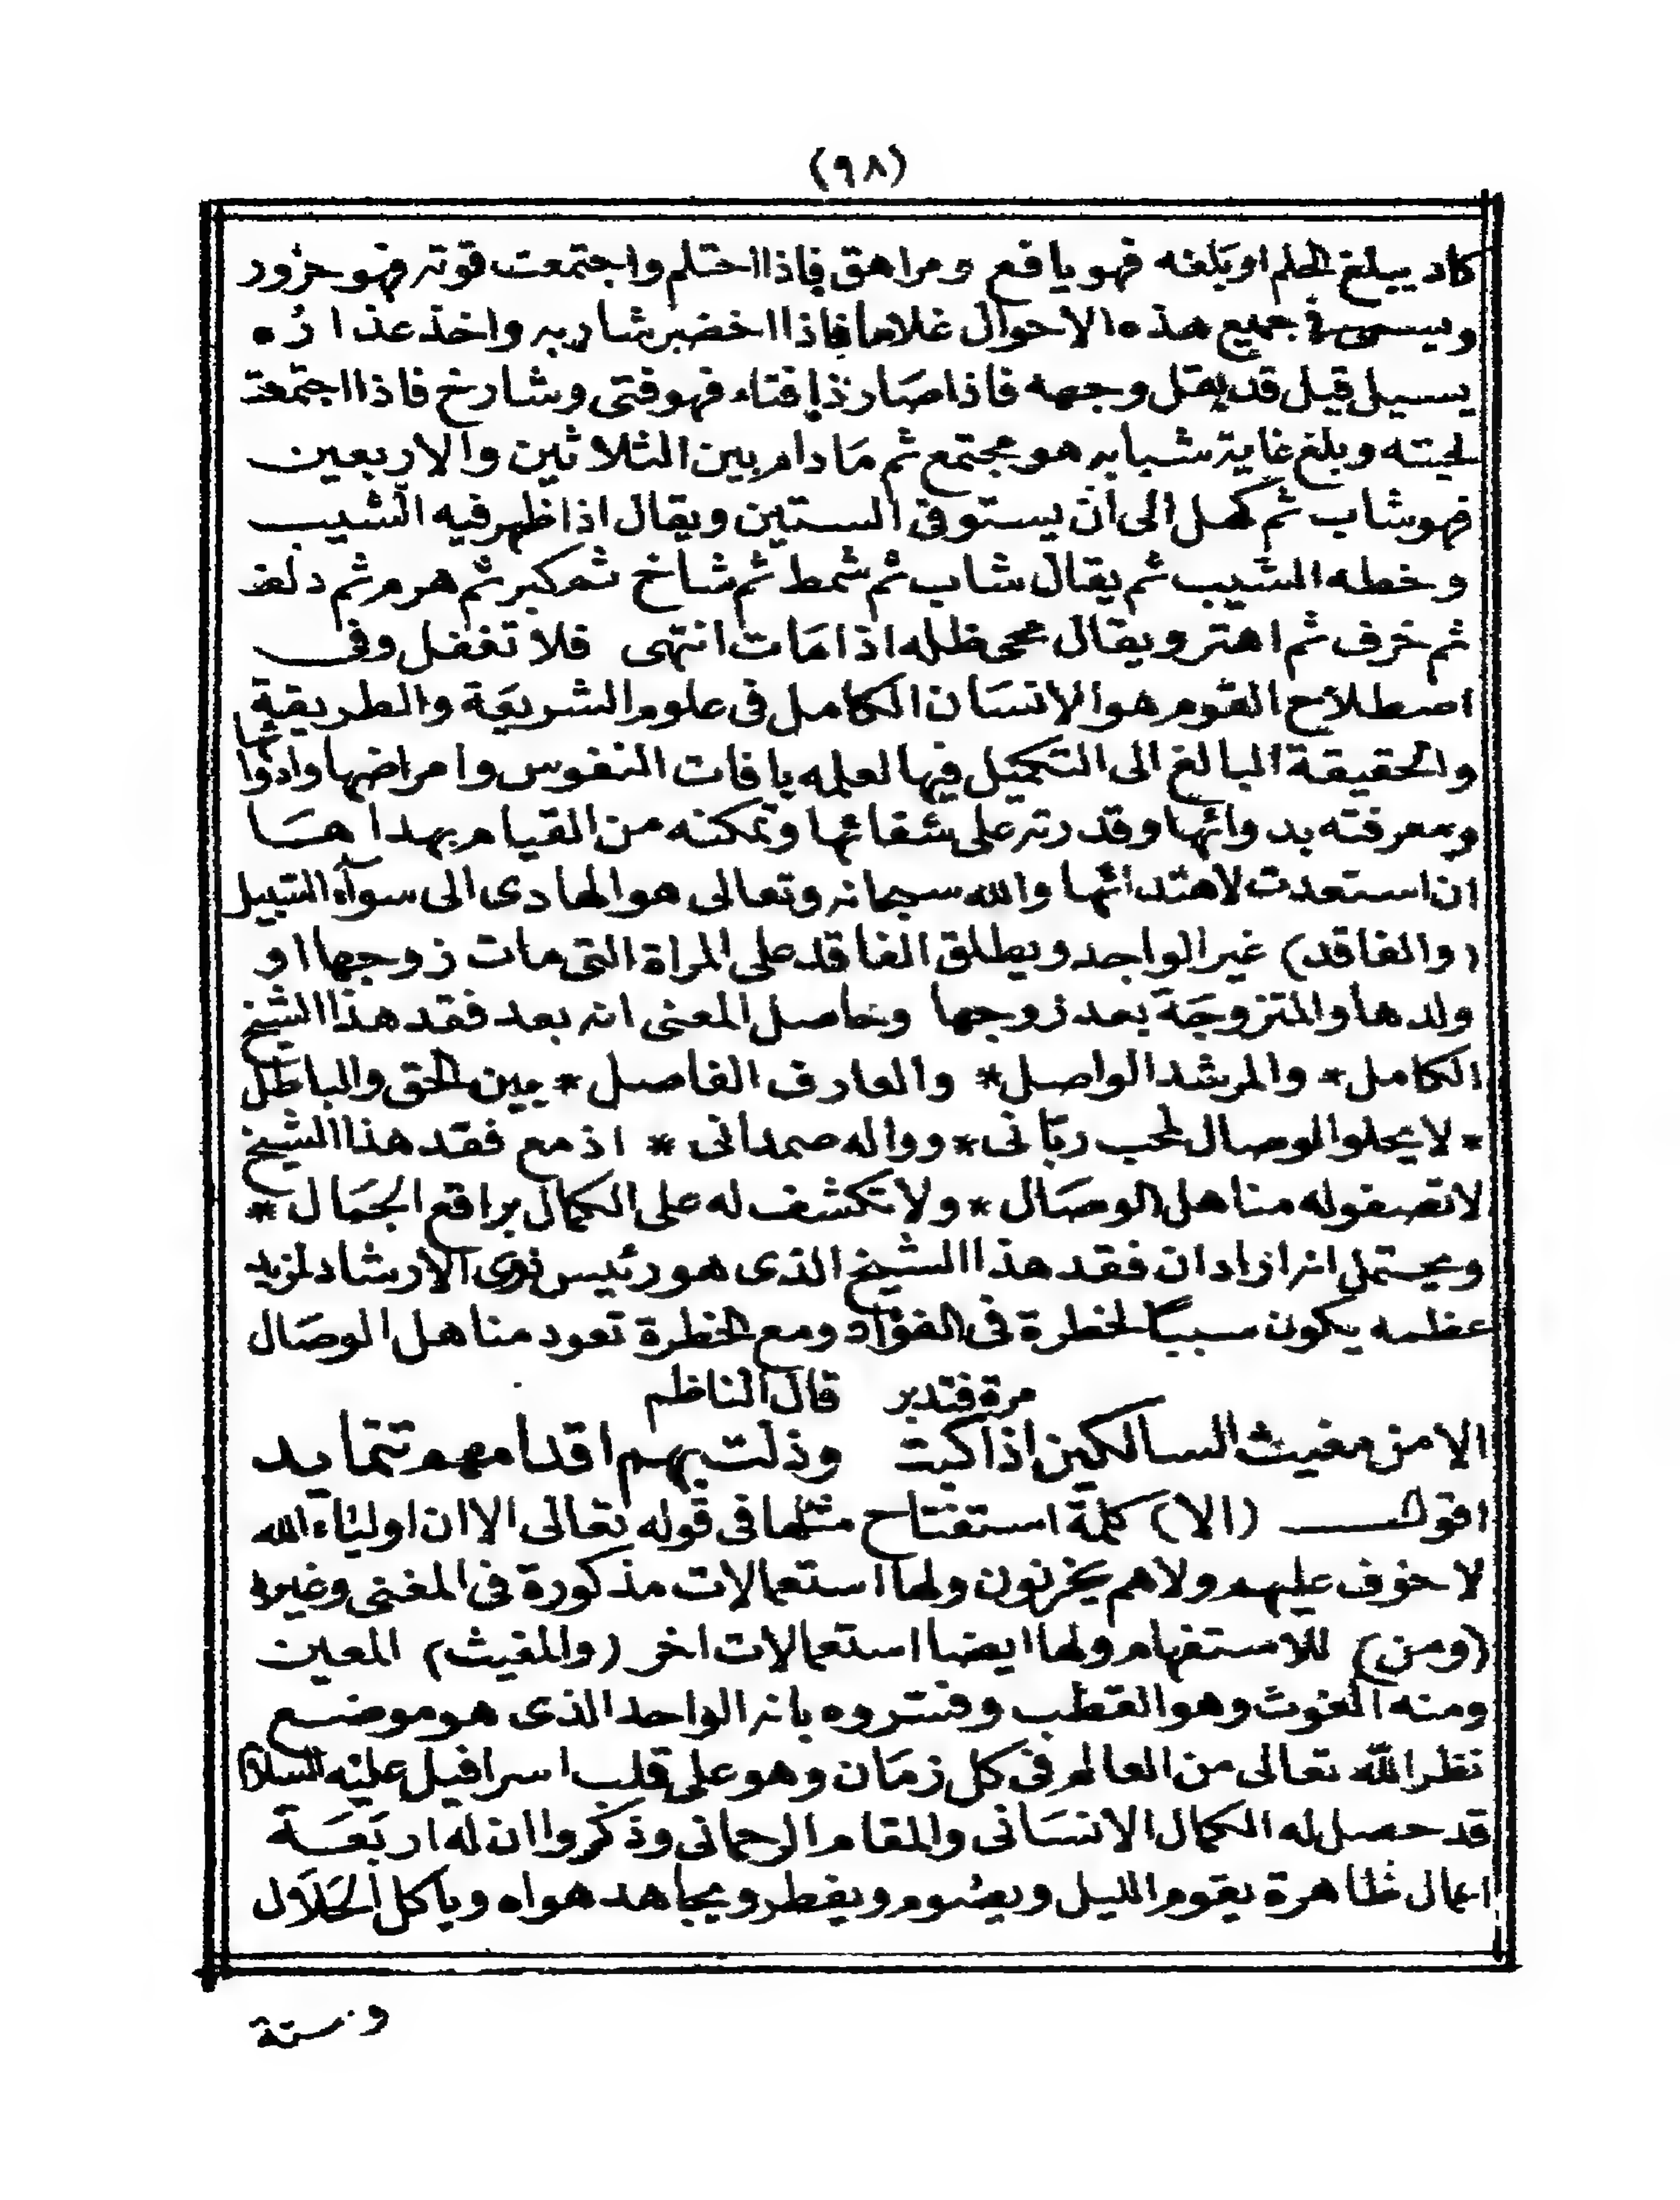 (٩٨)
كاد يبلغ الحلم او بلغه فهو يافع ومراهق فاذا احتلم واجتمعت قوته فهو حزور
ويسمى فى جميع هذه الاحوال غلاما فاذا اخضر شاربه واخذ عذاره
يسيل قيل قد بقل وجهه فاذا صار ذا فتاء فهو فتى وشارخ فاذا اجتمعت
لحيته وبلغ غاية شبابه هو مجتمع ثم مادام بين الثلاثين والاربعين
فهو شاب ثم كهل الى ان يستوفى الستين ويقال اذا ظهر فيه الشيب
وخطه الشيب ثم يقال شاب ثم شمط ثم شاخ ثم كبر ثم هرم ثم دلف
ثم خرف ثم اهتر ويقال محى ظله اذا مات انتهى فلا تغفل وفى
اصطلاح القوم هو الانسان الكامل فى علوم الشريعة والطريقة
والحقيقة البالغ الى التكميل فيها لعلمه بافات النفوس وامراضها وادوائها
ومعرفته بدوائها وقدرته على شفائها وتمكنه من القيام بهداها
ان استعدت لاهتدائها والله سبحانه وتعالى هو الهادى الى سوآء السبيل
(والفاقد) غير الواجد ويطلق الفاقد على المراة التى مات زوجها او
ولدها والمتزوجة بعد زوجها وحاصل المعنى انه بعد فقد هذا الشيخ
الكامل * والمرشد الواصل * والعارف الفاصل * بين الحق والباطل
* لا يحلو الوصال لمحب ربانى * وواله صمدانى * اذ مع فقد هذا الشيخ
لا تصفو له مناهل الوصال * ولا تكشف له على الكمال براقع الجمال *
ويحتمل انه اراد ان فقد هذا الشيخ الذى هو رئيس ذوى الارشاد لمزيد
عظمه يكون سبباً لخطرة فى الفؤاد ومع الخطرة تعود مناهل الوصال
مرة فتدبر قال الناظم
الا من مغيث السالكين اذا كبت وذلت بهم اقدامهم تتمايد
اقول (الا) كلمة استفتاح مثلها فى قوله تعالى الا ان اولياء الله
لا خوف عليهم ولا هم يحزنون ولها استعمالات مذكورة فى المغنى وغيره
(ومن) للاستفهام ولها ايضا استعمالات اخر (والمغيث) المعين
ومنه الغوث وهو القطب وفسروه بانه الواحد الذى هو موضع
نظر الله تعالى من العالم فى كل زمان وهو على قلب اسرافيل عليه السلام
قد حصل له الكمال الانسانى والمقام الرحمانى وذكروا ان له اربعة
اعمال ظاهرة يقوم الليل ويصوم ويفطر ويجاهد هواه وياكل الحلال
وستة